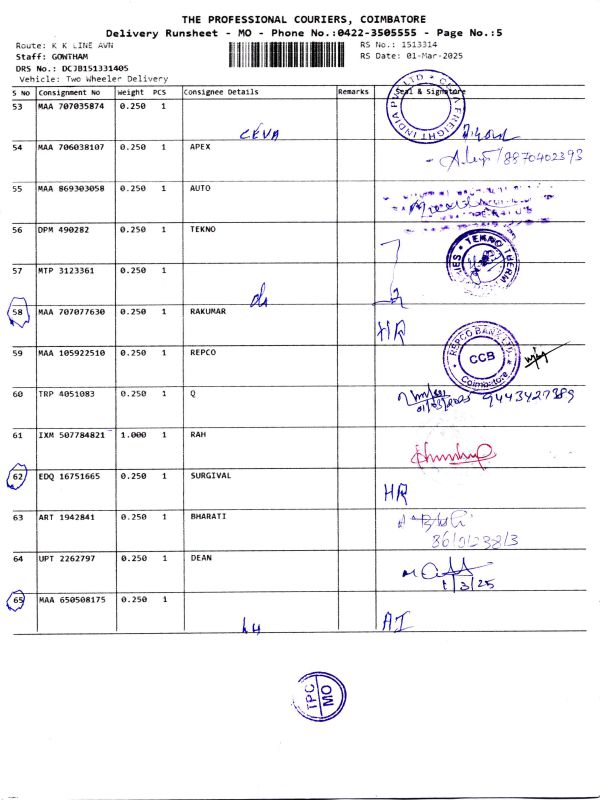 THE PROFESSIONAL COURIERS, COIMBATORE
Delivery Runsheet - MO - Phone No.:0422-3505555 - Page No.:5
Route: K K LINE AVN
RS No.: 1513314
Staff: GOWTHAM
RS Date: 01-Mar-2025
DRS No.: DCJB151331405
Vehicle: Two Wheeler Delivery
S No Consignment No Weight PCS Consignee Details Remarks Seal & Signature
53 MAA 707035874 0.250 1
CEVA
CEVA FREIGHT INDIA PVT LTD
54 MAA 706038107 0.250 1 APEX
8870402393
55 MAA 869303058 0.250 1 AUTO
56 DPM 490282 0.250 1 TEKNO
TEKNO THERM
57 MTP 3123361 0.250 1
58 MAA 707077630 0.250 1 RAKUMAR
HR
59 MAA 105922510 0.250 1 REPCO
REPCO BANK LTD.
CCB
Coimbatore
60 TRP 4051083 0.250 1 Q
01/03/2025 9443427389
61 IXM 507784821 1.000 1 RAH
62 EDQ 16751665 0.250 1 SURGIVAL
HR
63 ART 1942841 0.250 1 BHARATI
64 UPT 2262797 0.250 1 DEAN
1/3/25
65 MAA 650508175 0.250 1
AI
TPC
MO